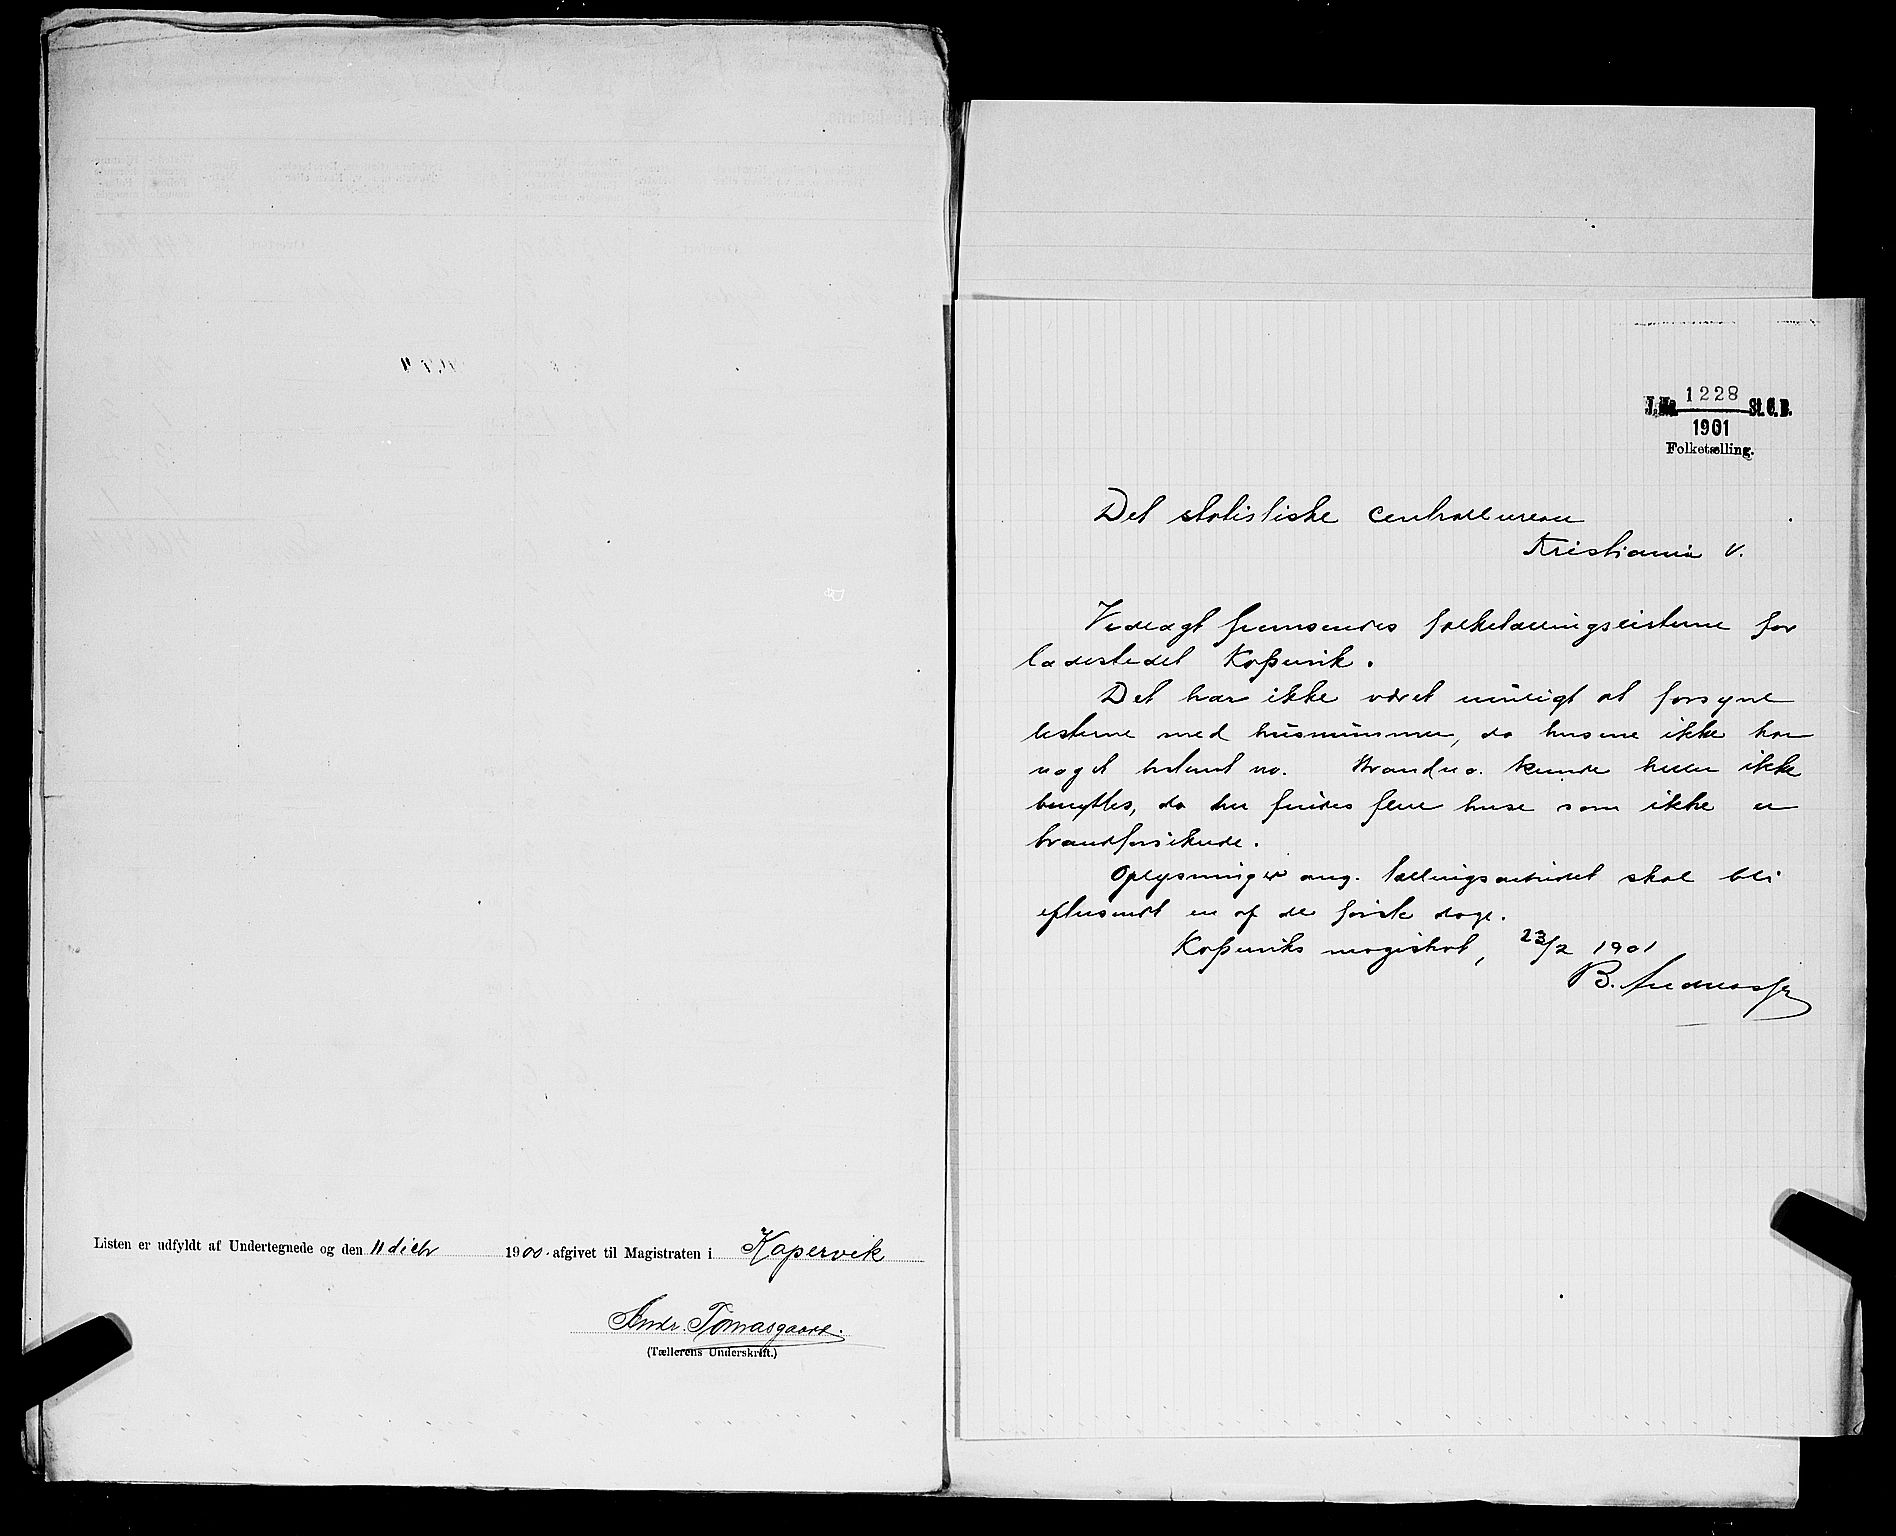 Listen er udfyldt af Undertegnede og den 11 decbr 1900 afgivet til Magistraten i Kopervik
Andr. Tomasgaard.
(Tællerens Underskrift.)
J. No. 1228 St. C. B.
1901
Folketælling.
Det statistiske centralbureau
Kristiania V.
Vedlagt fremsendes folketællingslisterne for
ladestedet Kopervik.
Det har ikke været muligt at forsyne
listerne med husnummer, da husene ikke har
noget bestemt no. Brandno. kunde heller ikke
benyttes, da her findes flere huse som ikke er
brandforsikrede.
Oplysninger ang. tællingsarbeidet skal bli
eftersendt en af de første dage.
Koperviks magistrat, 23/2 1901
B. Andreassen